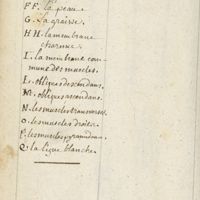 FF. la peau.
G. la graisse.
HH. la membrane
charnue.
I. la membrane com-
mune des muscles.
L. obliques descendans.
M. obliques ascendans.
N. les muscles transverses.
O. les muscles droits.
P. les muscles pyramidaux.
Q. la ligne blanche.